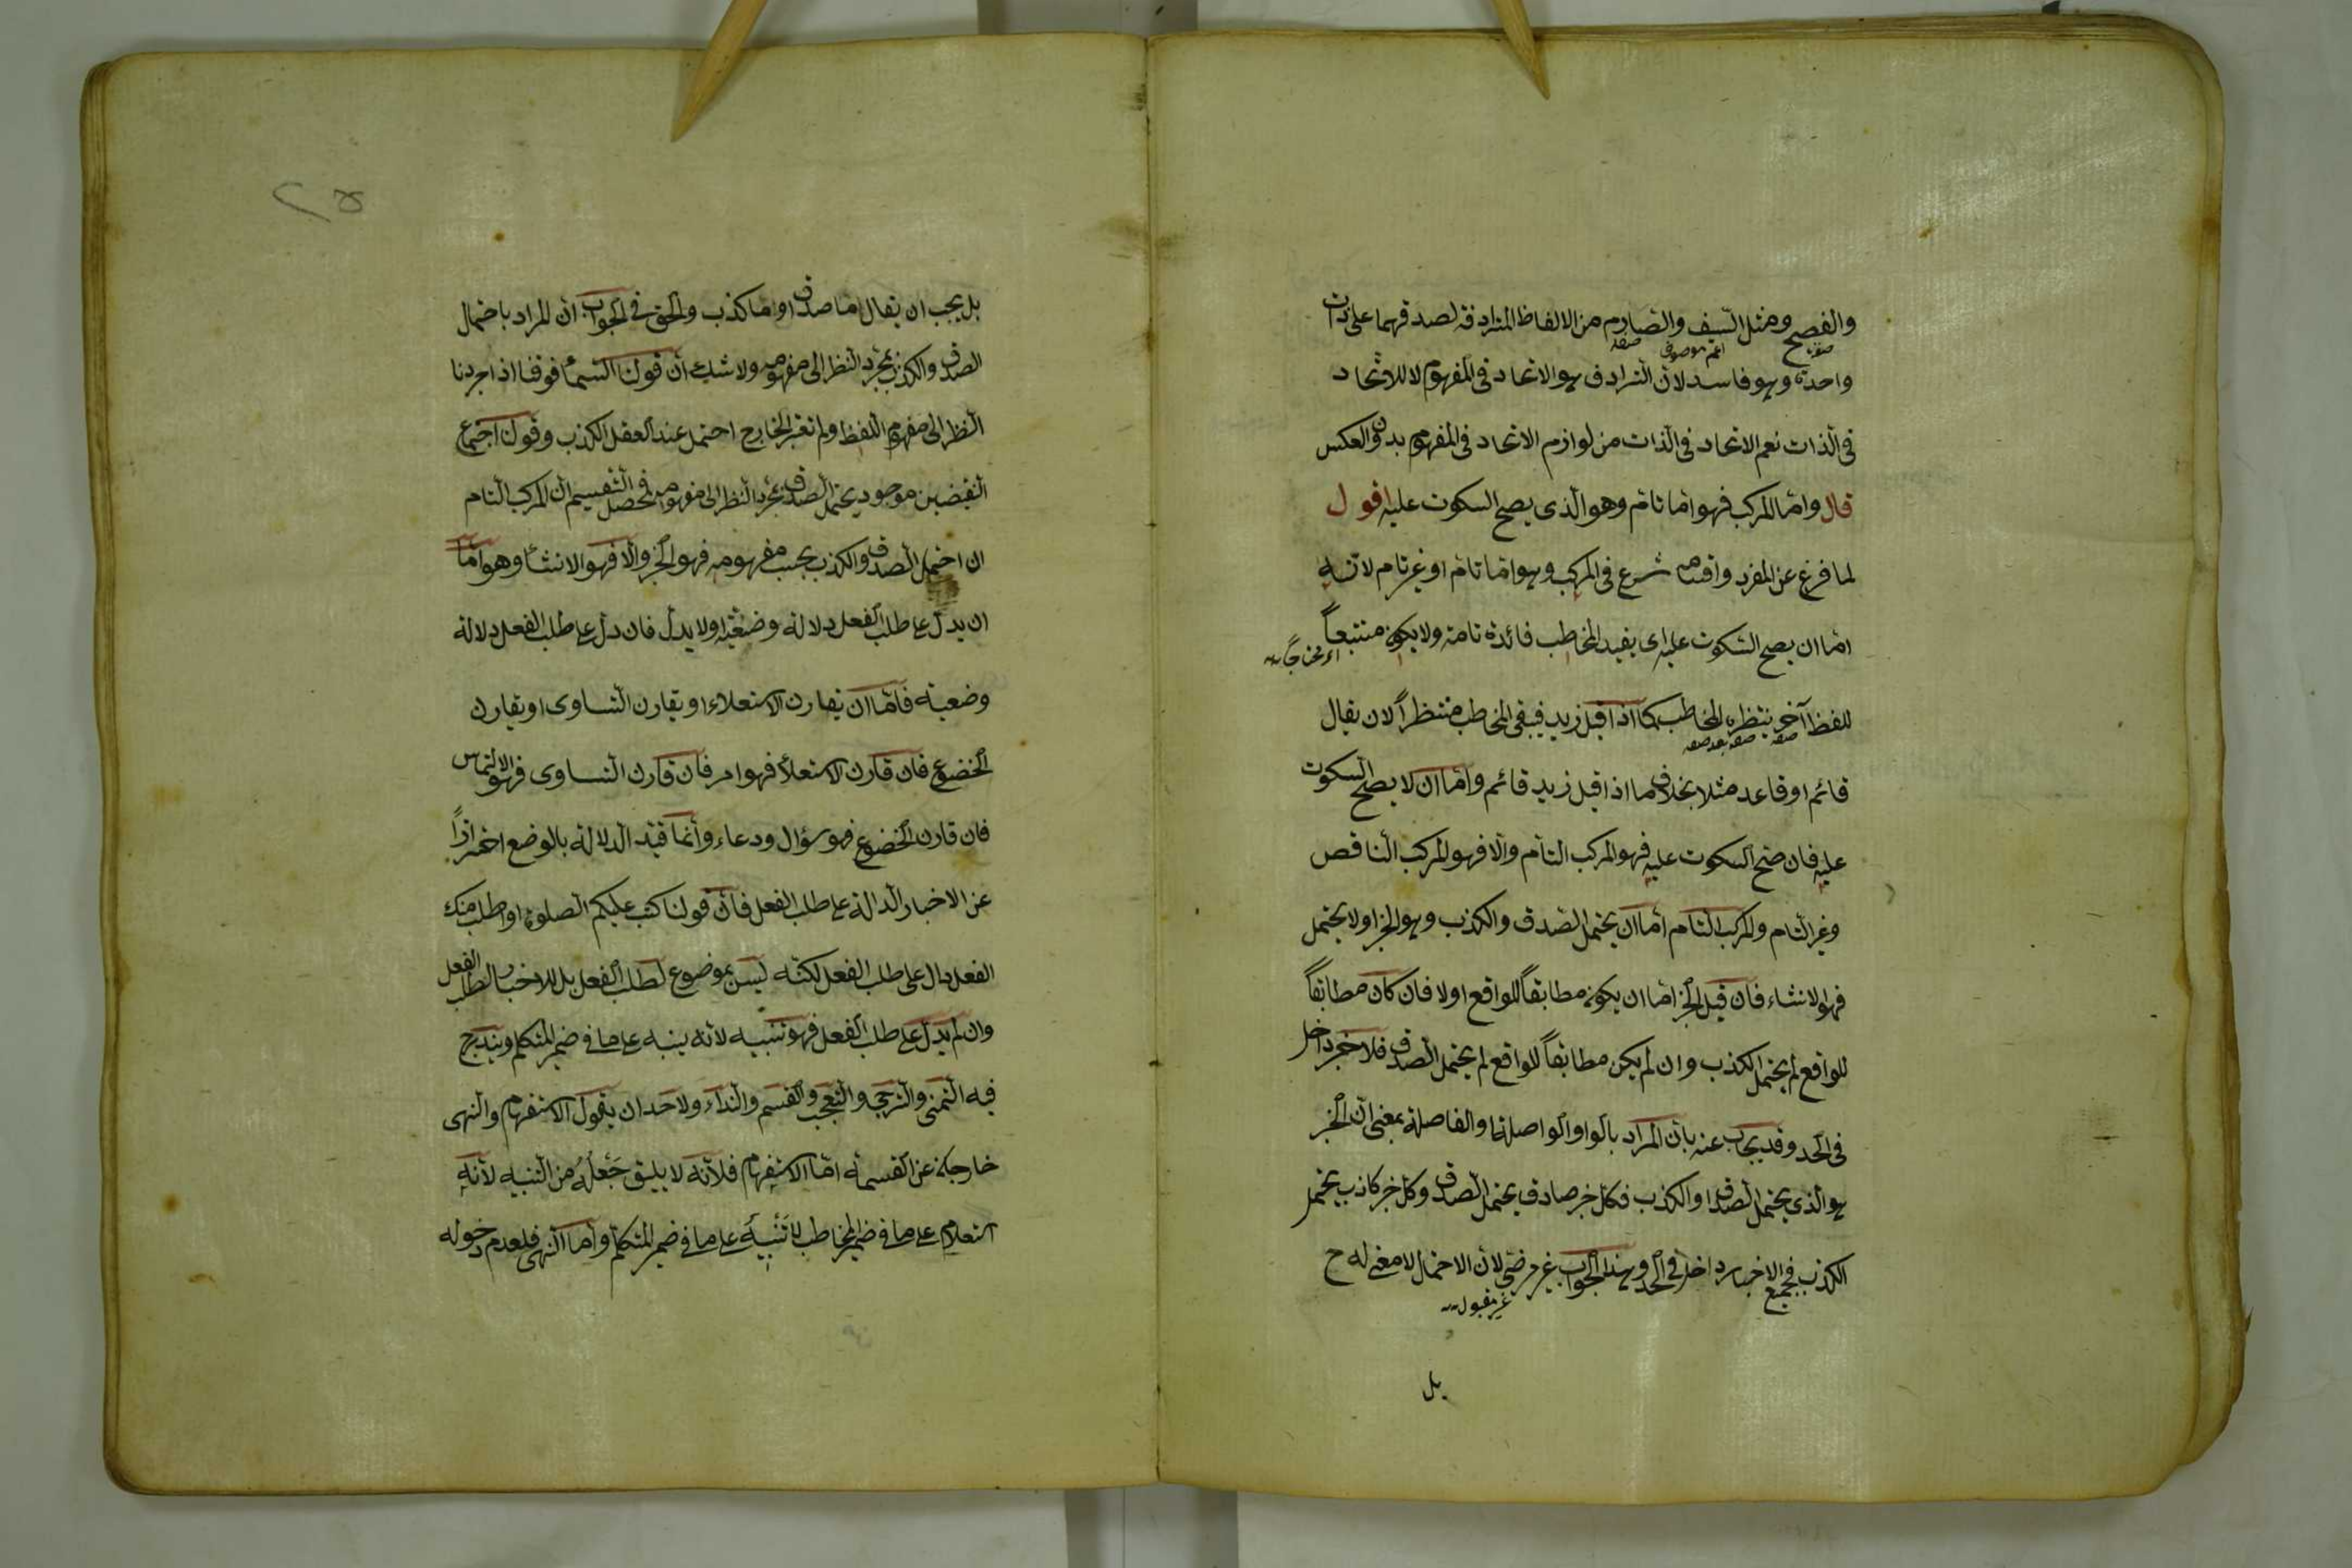 والفصيح ومثل السيف والصارم من الالفاظ المترادفة لصدقهما على ذات
صفة اسم موصوف صفة
واحدة وهو فاسد لان الترادف هو الاتحاد فى المفهوم لا للاتحاد
فى الذات نعم الاتحاد فى الذات من لوازم الاتحاد فى المفهوم بدون العكس
قال واما المركب فهو اما تام وهو الذى يصح السكوت عليه اقول
لما فرغ عن المفرد واقسامه شرع فى المركب وهو اما تام او غير تام لانه
اما ان يصح السكوت عليه اى يفيد المخاطب فائدة تامة ولا يكون مستتبعاً
اى محتاجاً
للفظ آخر ينتظره المخاطب كما اذا قيل زيد فيبقى المخاطب منتظراً لان يقال
صفة صفة بعد صفة
قائم او قاعد مثلا بخلاف ما اذا قيل زيد قائم واما ان لا يصح السكوت
عليه فان صح السكوت عليه فهو المركب التام والا فهو المركب الناقص
وغير التام والمركب التام اما ان يحتمل الصدق والكذب وهو الخبر او لا يحتمل
فهو الانشاء فان قيل الخبر اما ان يكون مطابقاً للواقع او لا فان كان مطابقاً
للواقع لم يحتمل الكذب وان لم يكن مطابقاً للواقع لم يحتمل الصدق فلا خبر داخل
فى الحد وقد يجاب عنه بان المراد بالواو الواصلة او الفاصلة بمعنى ان الخبر
هو الذى يحتمل الصدق او الكذب فكل خبر صادق يحتمل الصدق وكل خبر كاذب يحتمل
الكذب فجميع الاخبار داخل فى الحد وهذا الجواب غير مرضى لان الاحتمال لا معنى له ح
غير مقبول
بل
بل يجب ان يقال اما صدق او اما كذب والحق فى الجواب ان المراد باحتمال
الصدق والكذب بمجرد النظر الى مفهومه ولا شك ان قولنا السماء فوقنا اذا جردنا
النظر الى مفهوم اللفظ ولم نعتبر الخارج احتمل عند العقل الكذب وقولنا اجتماع
النقيضين موجود يحتمل الصدق بمجرد النظر الى مفهومه فحصل فى التقسيم ان المركب التام
ان احتمل الصدق والكذب بحسب مفهومه فهو الخبر والا فهو الانشاء وهو اما
ان يدل على طلب الفعل دلالة وضعية او لا يدل فان دل على طلب الفعل دلالة
وضعية فاما ان يقارن الاستعلاء او يقارن التساوى او يقارن
الخضوع فان قارن الاستعلاء فهو امر فان قارن التساوى فهو الالتماس
فان قارن الخضوع فهو سؤال ودعاء وانما قيد الدلالة بالوضع احترازاً
عن الاخبار الدالة على طلب الفعل فان قولنا كتب عليكم الصلوة او اطلب منك
الفعل دال على طلب الفعل لكنه ليس بموضوع لطلب الفعل بل للاخبار لطلب الفعل
وان لم يدل على طلب الفعل فهو تنبيه لانه ينبه على ما فى ضمير المتكلم ويندرج
فيه التمنى والترجى والتعجب والقسم والنداء ولاحد ان يقول الاستفهام والنهى
خارجان عن القسمة اما الاستفهام فلانه لا يليق جَعْلُهُ من التنبيه لانه
استعلام على ما فى ضمير المخاطب لا تنبيه على ما فى ضمير المتكلم واما النهى فلعدم دخوله